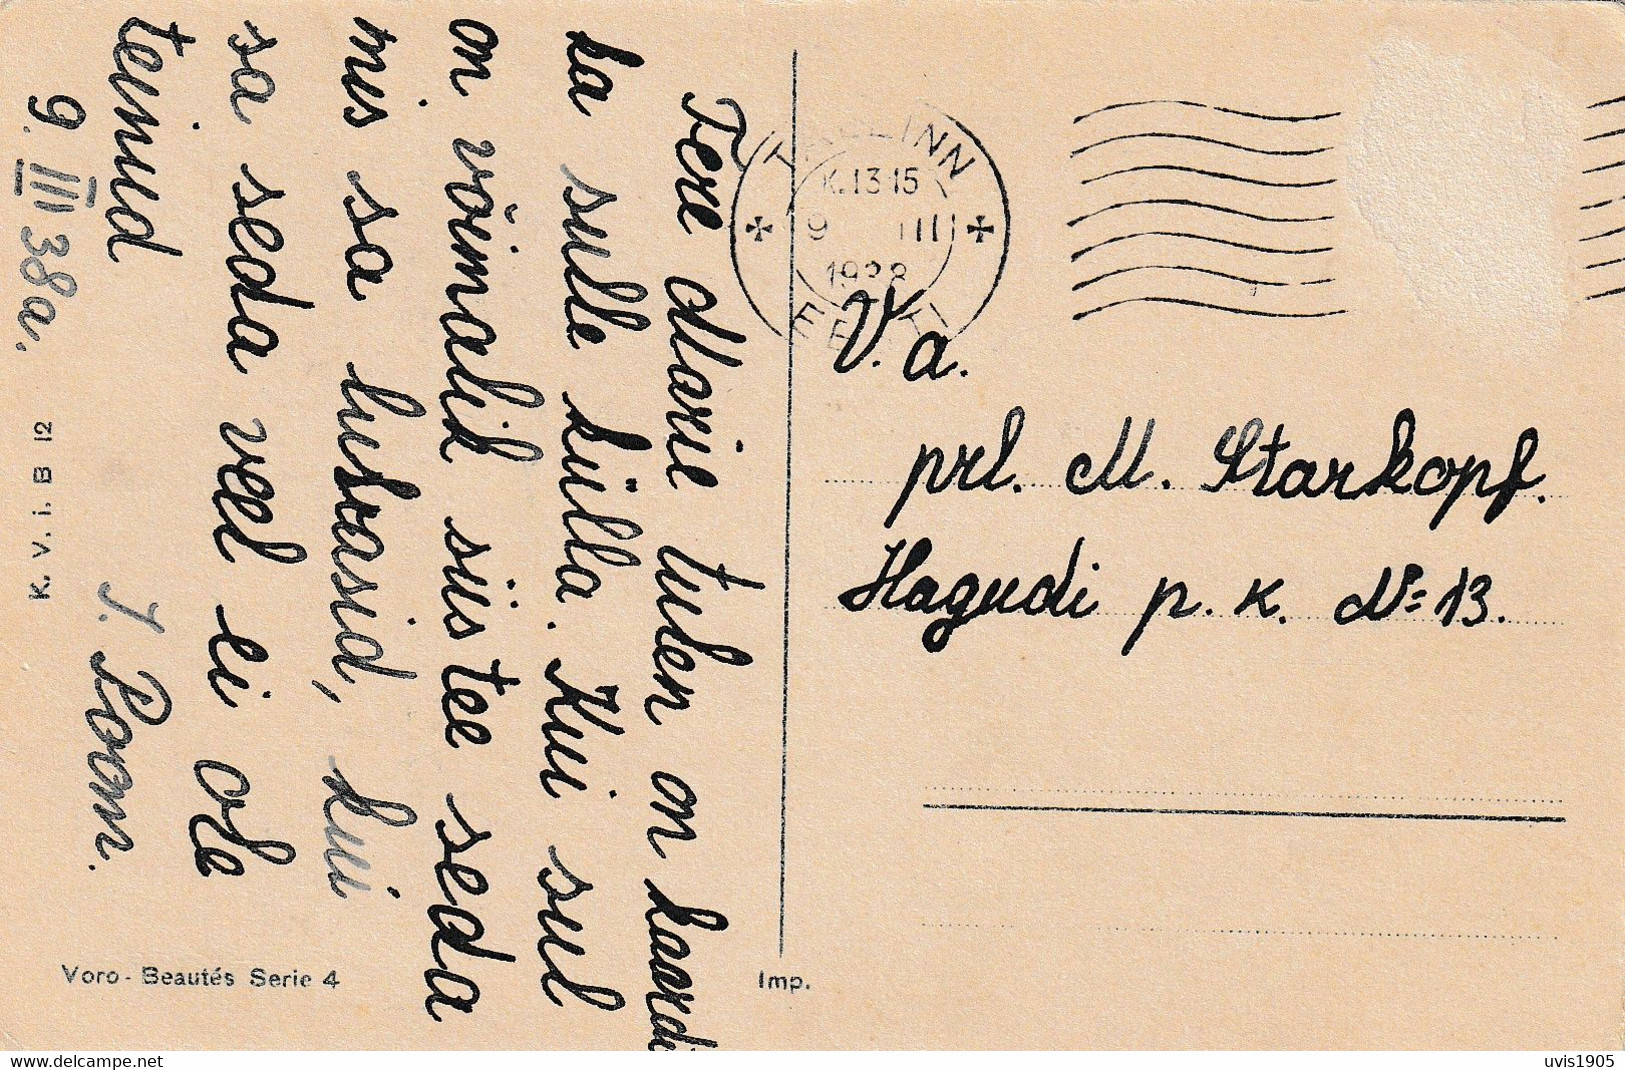 Tere Marie tulen on kaardi
ka sulle külla. Kui sul
on võimalik siis tee seda
mis sa lubasid, kui
sa seda veel ei ole
teinud
J. Loom.
9. III 38a.
K. v. i. B 12
Voro - Beautés Serie 4
Imp.
TALLINN
K. 13 15
9 III
1938
EESTI
V. a.
prl. M. Starkopf.
Hagudi p. k. № 13.
delcampe.net
uvis1905